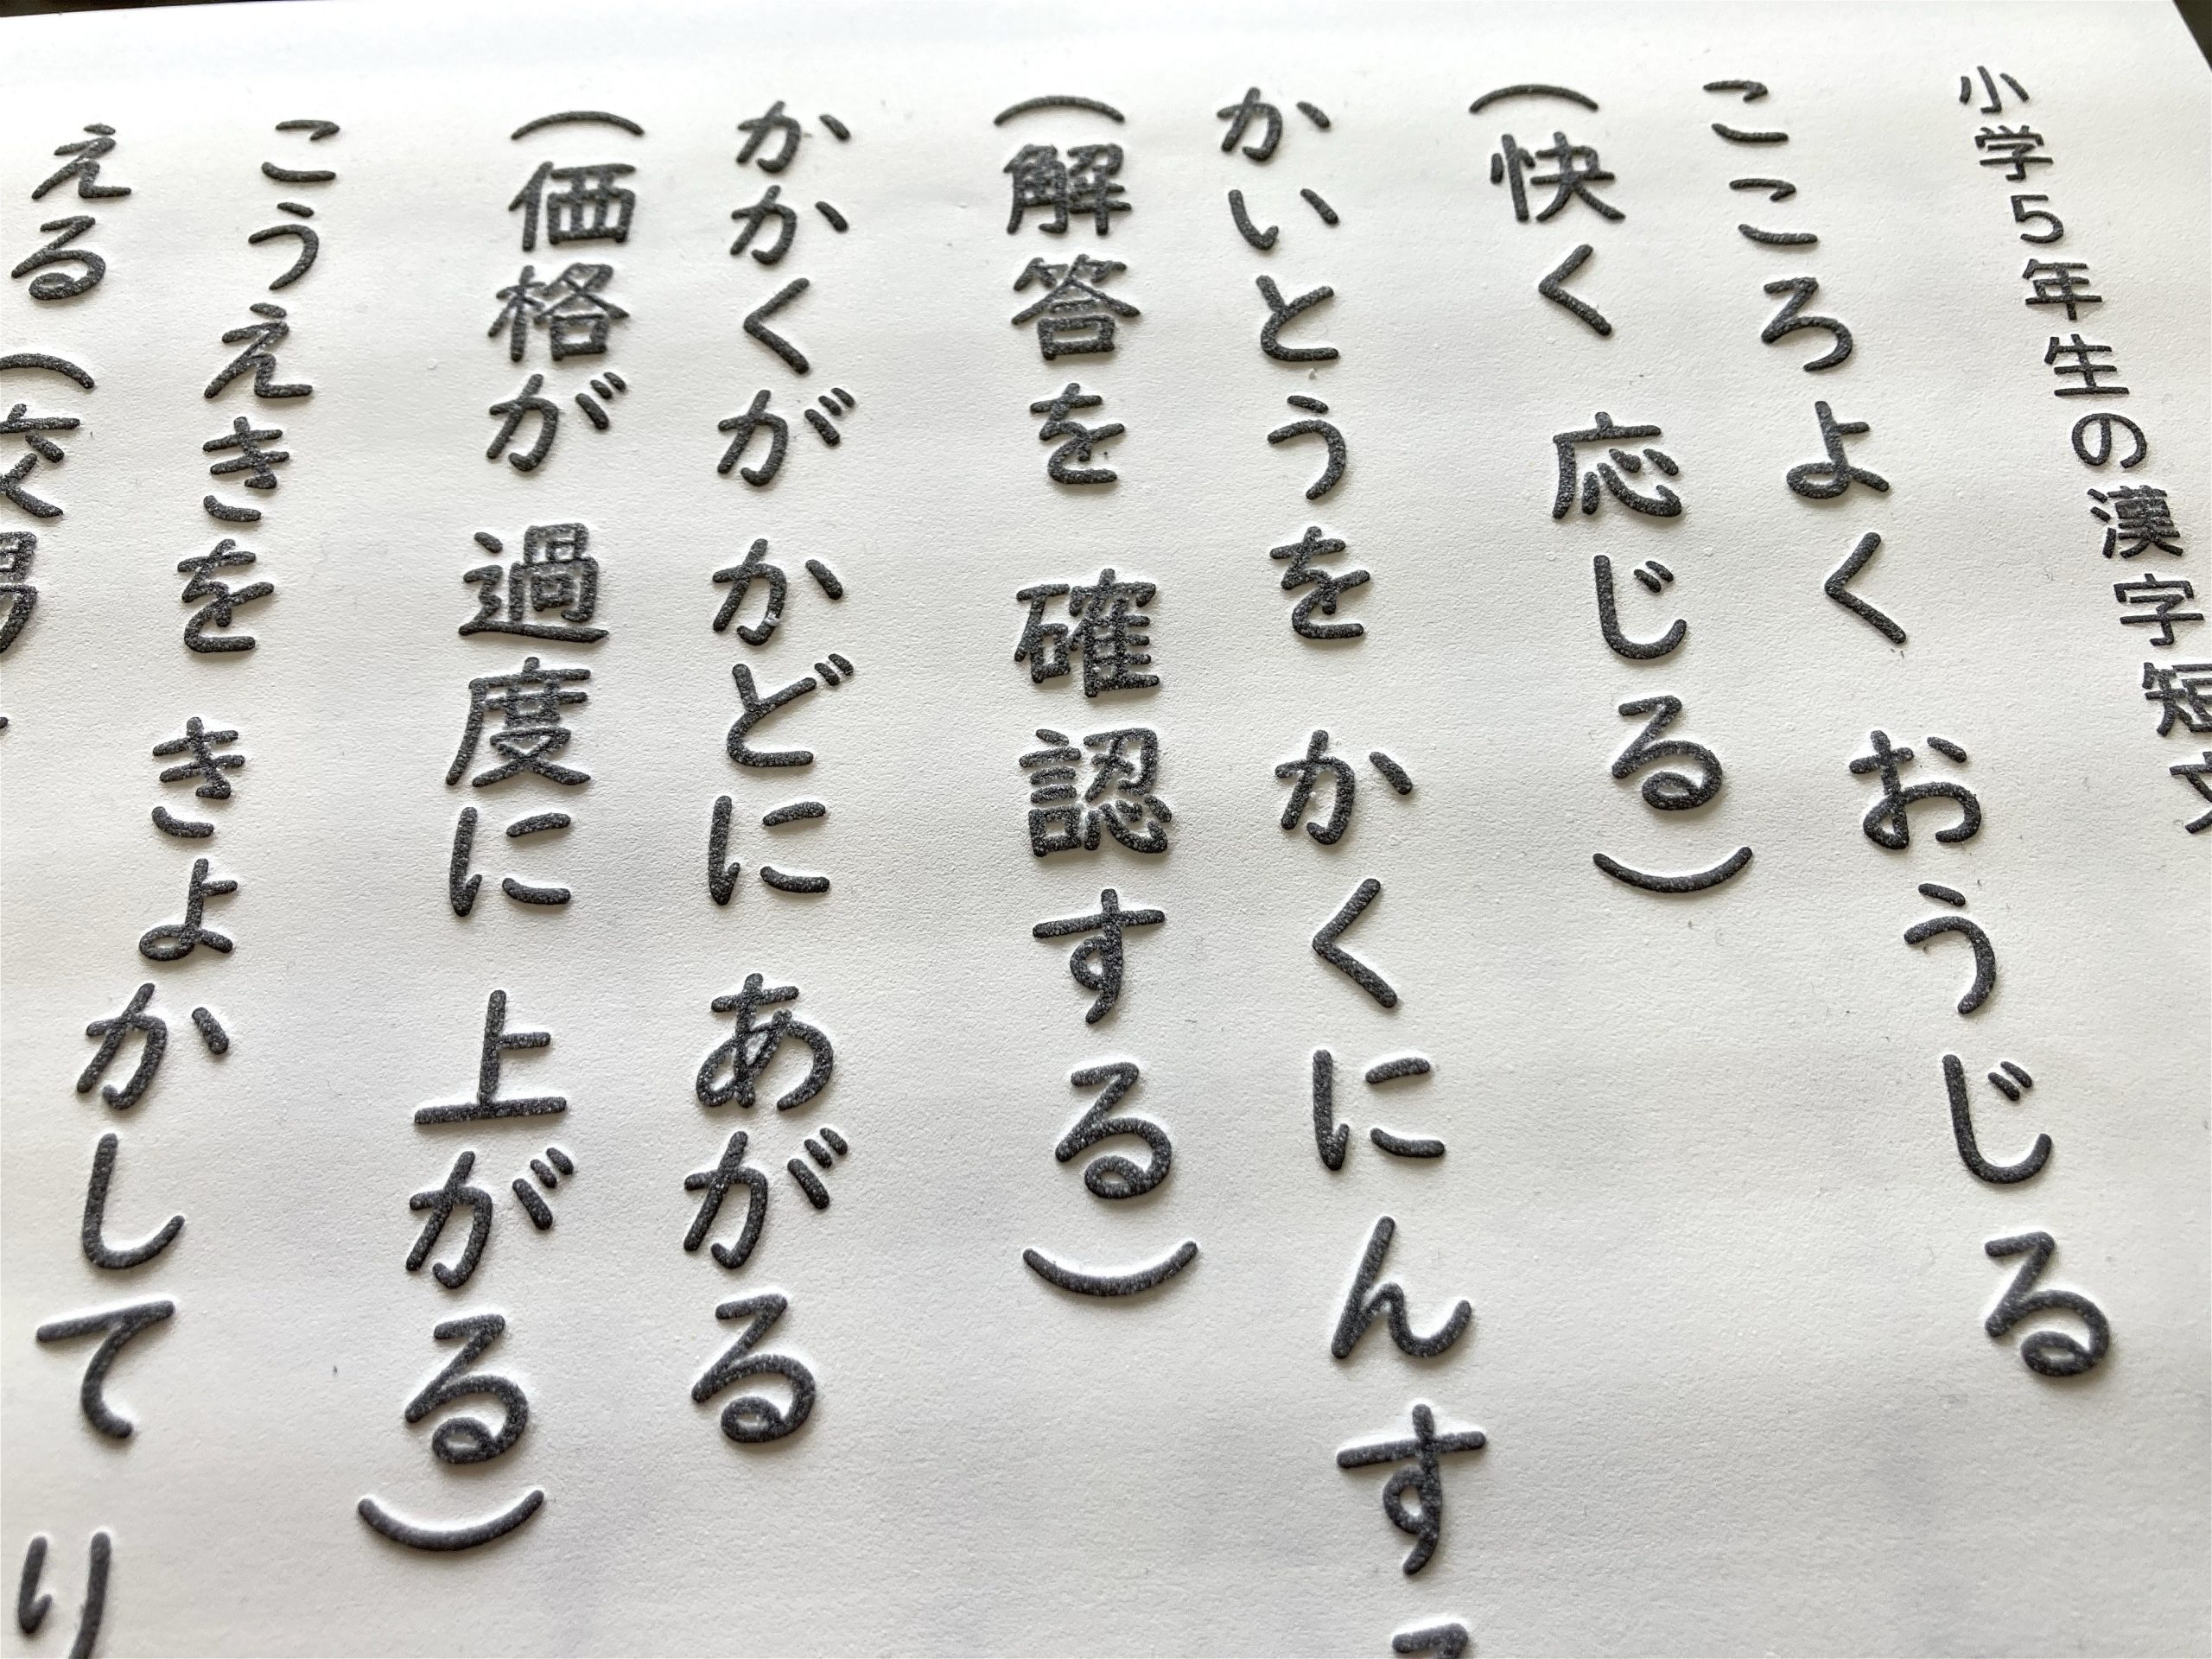 小学5年生の漢字短文
こころよく おうじる
(快く 応じる)
かいとうを かくにんす
(解答を 確認する)
かかくが かどに あがる
(価格が 過度に 上がる)
こうえきを きょかして り
える (交易